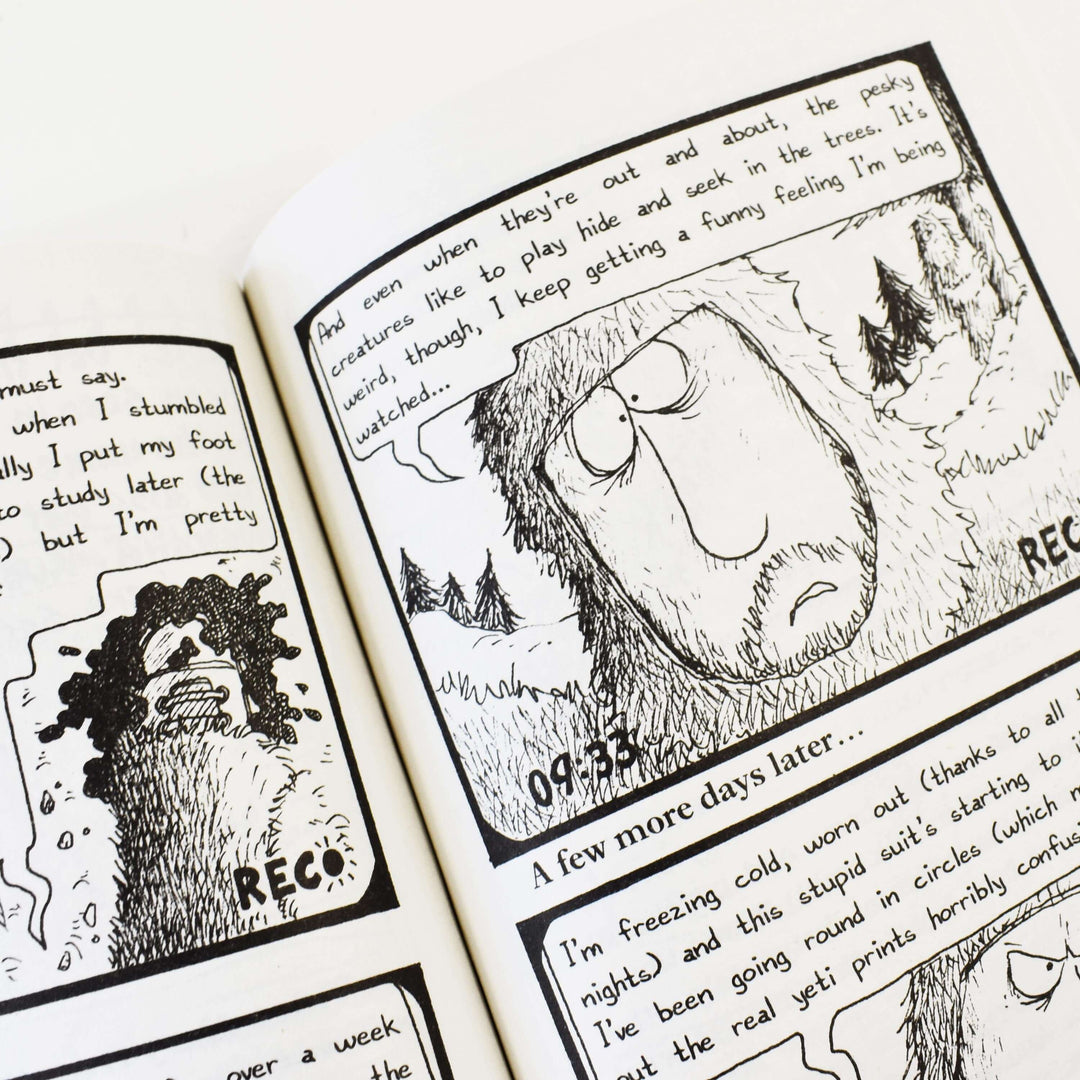 must say.
when I stumbled
I put my foot
to study later (the
) but I'm pretty
RECO
over a week
the
And even when they're out and about, the pesky
creatures like to play hide and seek in the trees. It's
weird, though, I keep getting a funny feeling I'm being
watched...
REC
09:33
A few more days later...
I'm freezing cold, worn out (thanks to all
nights) and this stupid suit's starting to
I've been going round in circles (which
out the real yeti prints horribly